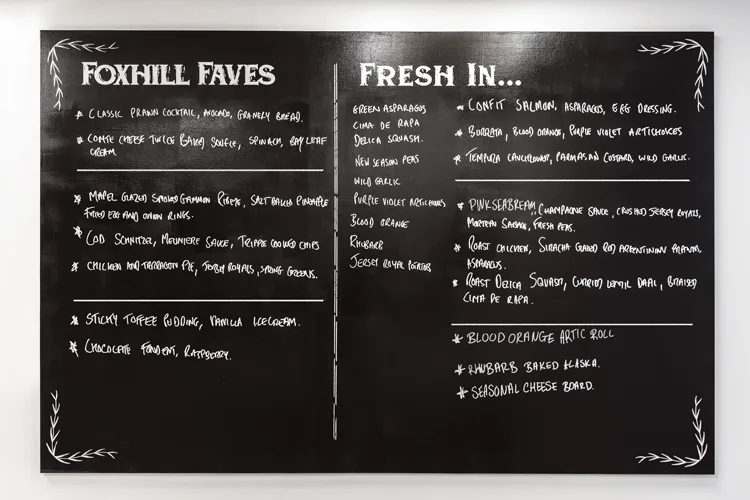 FOXHILL FAVES
* CLASSIC PRAWN COCKTAIL, AVOCADO, GRANERY BREAD.
* COMTE CHEESE TWICE BAKED SOUFLE, SPINACH, BAY LEAF
CREAM.
* MAPEL GLAZED SMOKED GAMMON RIBEYE, SALT BAKED PINEAPPLE
FRIED EGG AND ONION RINGS.
* COD SCHNITZEL, MEUNIERE SAUCE, TRIPPE COOKED CHIPS
* CHICKEN AND TARRAGON PIE, JERSEY ROYALS, SPRING GREENS.
* STICKY TOFFEE PUDDING, VANILLA ICECREAM.
* CHOCOLATE FONDENT, RASPBERRY.
FRESH IN...
GREEN ASPARAGUS
CIMA DE RAPA
DELICA SQUASH.
NEW SEASON PEAS
WILD GARLIC
PURPLE VIOLET ARTICHOKES
BLOOD ORANGE
RHUBARB
JERSEY ROYAL POTATOES
* CONFIT SALMON, ASPARAGUS, EGG DRESSING.
* BURRATA, BLOOD ORANGE, PURPLE VIOLET ARTICHOKES
* TEMPURA CAULIFLOWER, PARMASAN CUSTARD, WILD GARLIC.
* PINK SEABREAM, CHAMPAGNE SAUCE, CRUSHED JERSEY ROYALS,
MORTEAU SAUSAGE, FRESH PEAS.
* ROAST CHICKEN, SIRACHA GLAZED RED ARGENTINIAN PRAWN,
ASPARAGUS.
* ROAST DELICA SQUASH, CURRIED LENTIL DAAL, BRAISED
CIMA DE RAPA.
* BLOOD ORANGE ARTIC ROLL
* RHUBARB BAKED ALASKA.
* SEASONAL CHEESE BOARD.